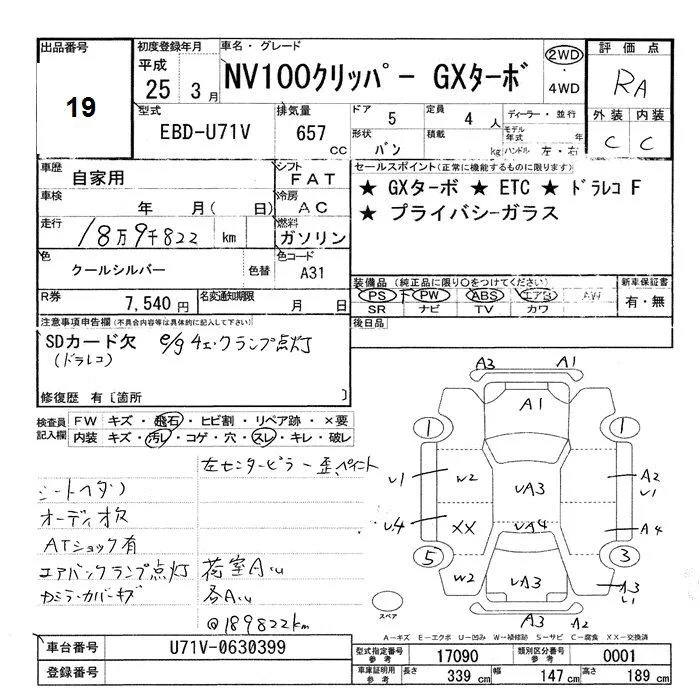 出品番号
19
初度登録年月
平成
25 3月
車名・グレード
NV100クリッパー GXターボ
2WD
・
4WD
評価点
RA
外装 内装
C C
型式
EBD-U71V
排気量
657 cc
ドア 5
定員 4人
形状 バン
積載 kg
ディーラー・並行
モデル年式 年
ハンドル 左・右
車歴 自家用
シフト FAT
車検 年 月(日)
冷房 AC
走行 18万9千822 km
燃料 ガソリン
色 クールシルバー 色替
色コード A31
R券 7,540円
名変通知期限 月 日
セールスポイント(正常に機能するものに限ります)
★ GXターボ ★ ETC ★ ドラレコ F
★ プライバシーガラス
装備品(純正品に限り○をつけてください)
PS PW ABS エアB AW
SR ナビ TV カワ
新車保証書
有・無
後日品
注意事項申告欄(不具合内容等は具体的に記入して下さい)
SDカード欠 e/g チェックランプ点灯
(ドラレコ)
修復歴 有[箇所 ]
検査員記入欄
FW キズ・飛石・ヒビ割・リペア跡・×要
内装 キズ・汚レ・コゲ・穴・スレ・キレ・破レ
左センターピラー歪ペイント
シートヘタリ
オーディオ欠
ATショック有
エアバックランプ点灯 荷室A.u
各A.u
@189822km
A3 A1
A1
1 1
U1 W2 UA3 A2
U1
U4 XX UA4 A4
5 3
W2 UA3 A3
U1
A3 A2
スペア
A-キズ E-エクボ U-凹み W-補修跡 S-サビ C-腐食 XX-交換済
車台番号 U71V-0630399
登録番号
型式指定番号 参考 17090
類別区分番号 参考 0001
車庫証明用 参考 長さ 339 cm 幅 147 cm 高さ 189 cm